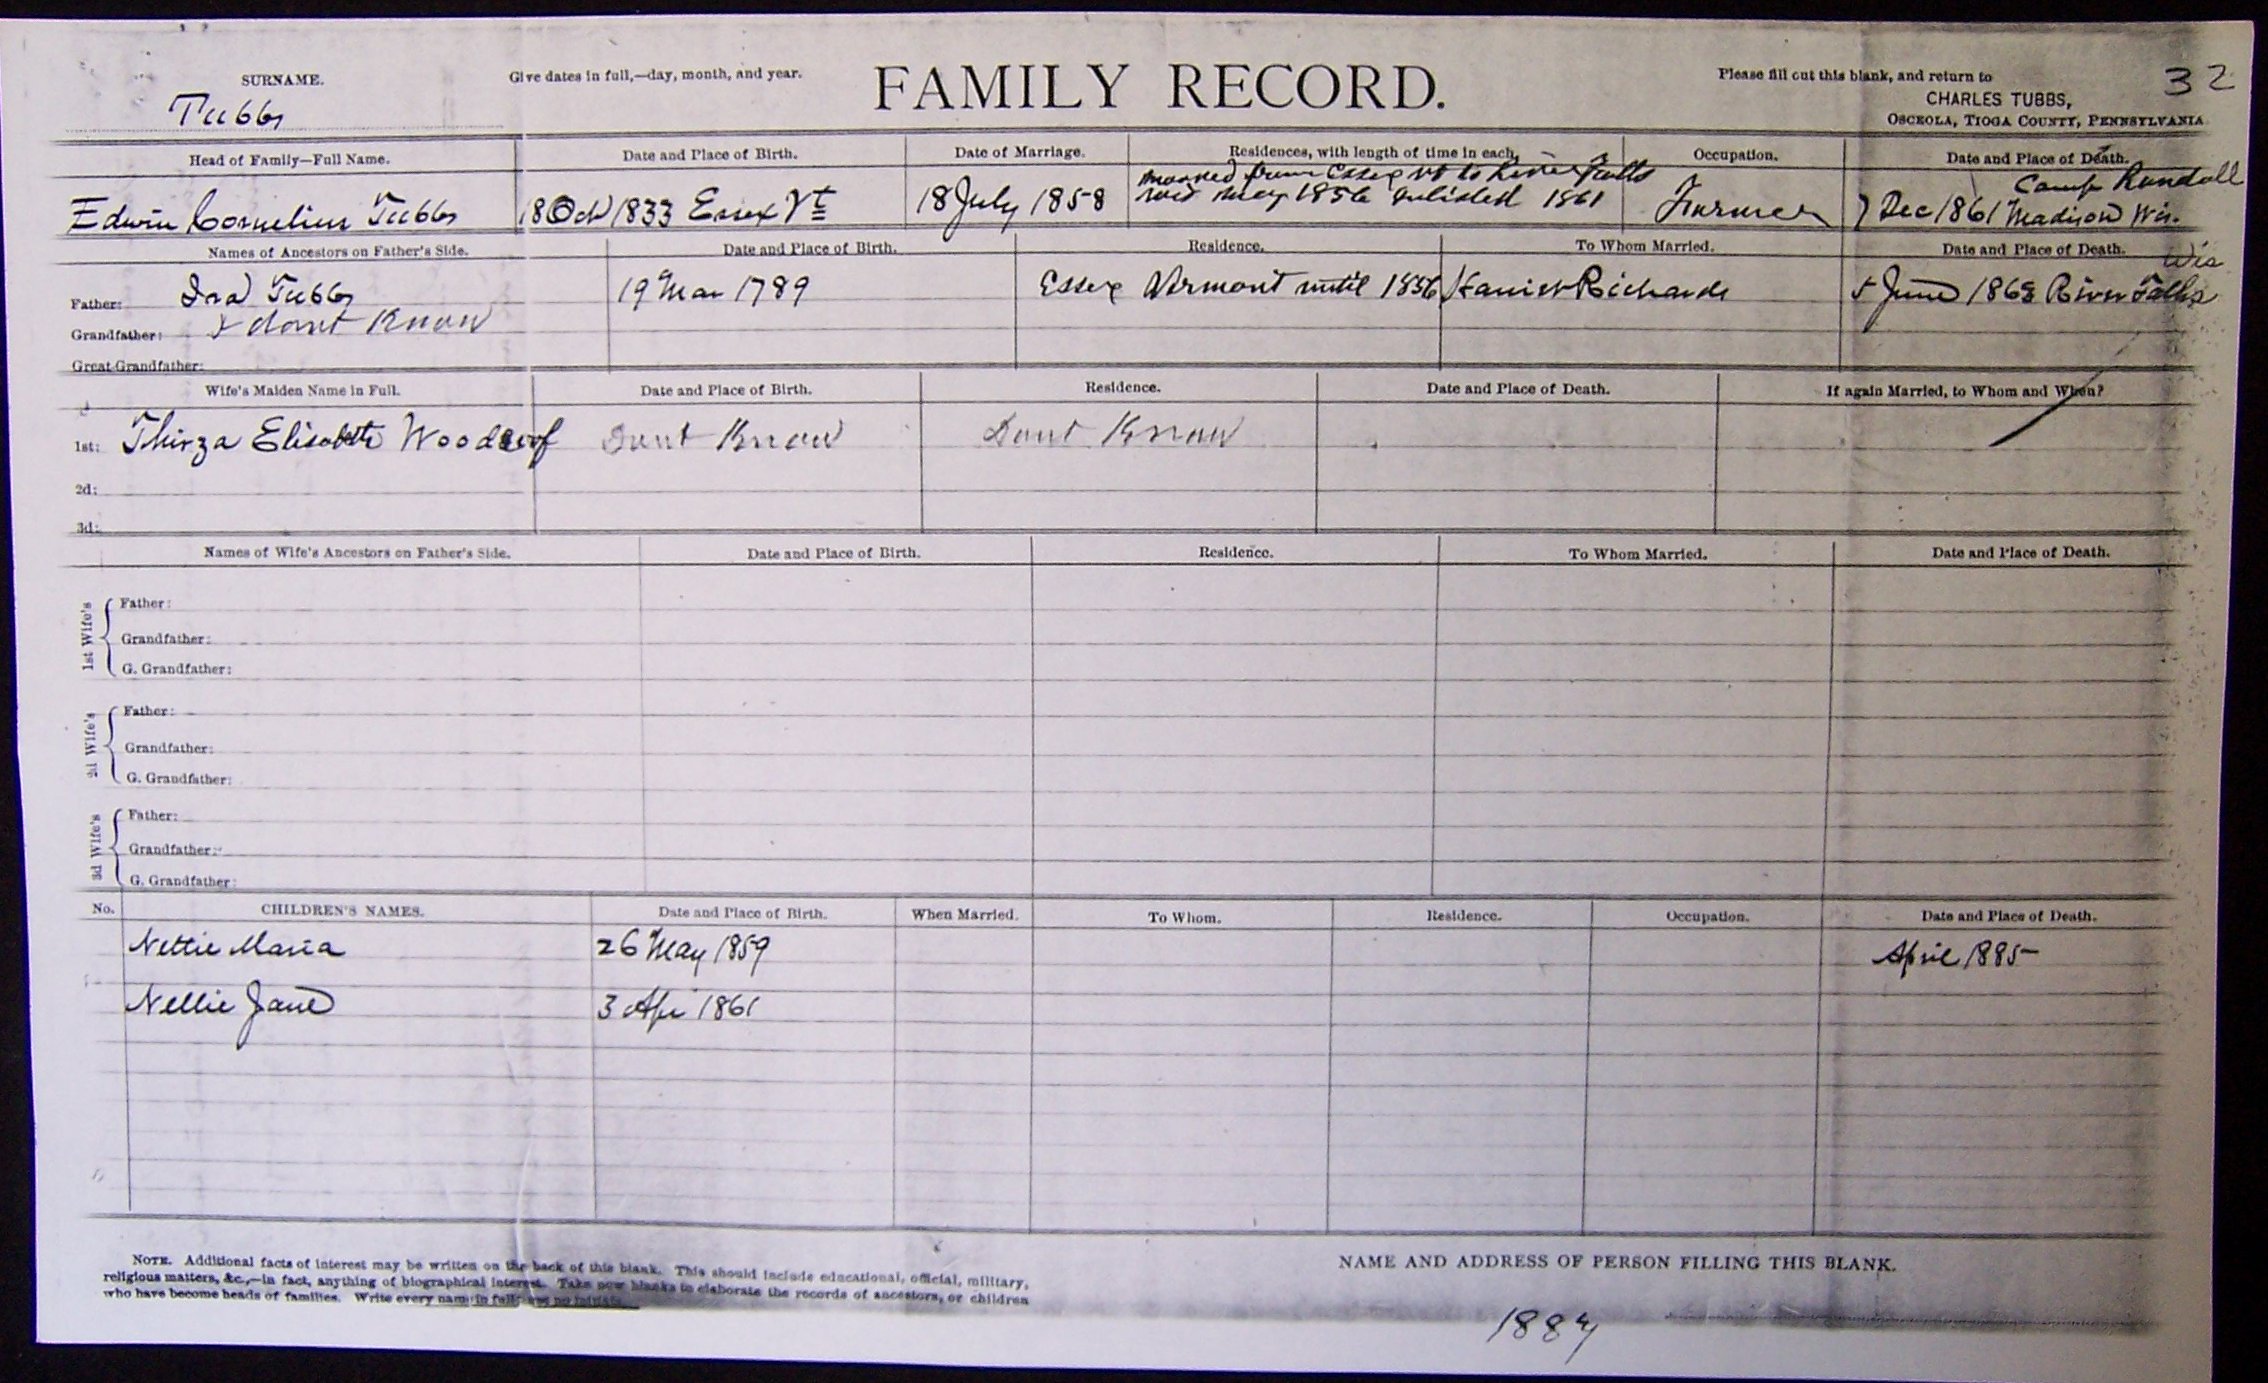 SURNAME.
Tubbs
Give dates in full,—day, month, and year.
FAMILY RECORD.
Please fill out this blank, and return to
CHARLES TUBBS,
OSCEOLA, TIOGA COUNTY, PENNSYLVANIA
32
Head of Family—Full Name. Date and Place of Birth. Date of Marriage. Residences, with length of time in each. Occupation. Date and Place of Death.
Edwin Cornelius Tubbs 18 Oct 1833 Essex Vt 18 July 1858 mooved from Essex vt to River Falls
May 1856 enlisted 1861 Farmer 7 Dec 1861 Camp Randall
Madison Wis.
Names of Ancestors on Father's Side. Date and Place of Birth. Residence. To Whom Married. Date and Place of Death.
Father: Ira Tubbs 19 Mar 1789 Essex Vermont until 1856 Richards 5 June 1868 River Falls Wis
Grandfather: I dont Know
Great Grandfather:
Wife's Maiden Name in Full. Date and Place of Birth. Residence. Date and Place of Death. If again Married, to Whom and When?
1st: Thirza Elisabeth Dont Know Dont Know
2d:
3d:
Names of Wife's Ancestors on Father's Side. Date and Place of Birth. Residence. To Whom Married. Date and Place of Death.
1st Wife's
Father:
Grandfather:
G. Grandfather:
2d Wife's
Father:
Grandfather:
G. Grandfather:
3d Wife's
Father:
Grandfather:
G. Grandfather:
No. CHILDREN'S NAMES. Date and Place of Birth. When Married. To Whom. Residence. Occupation. Date and Place of Death.
Nettie Maria 26 May 1859 April 1885
Nellie Jane 3 Apr 1861
NOTE. Additional facts of interest may be written on the back of this blank. This should include educational, official, military,
religious matters, &c.,—in fact, anything of biographical interest. Take new blanks to elaborate the records of ancestors, or children
who have become heads of families. Write every name in full; use no initials.
NAME AND ADDRESS OF PERSON FILLING THIS BLANK.